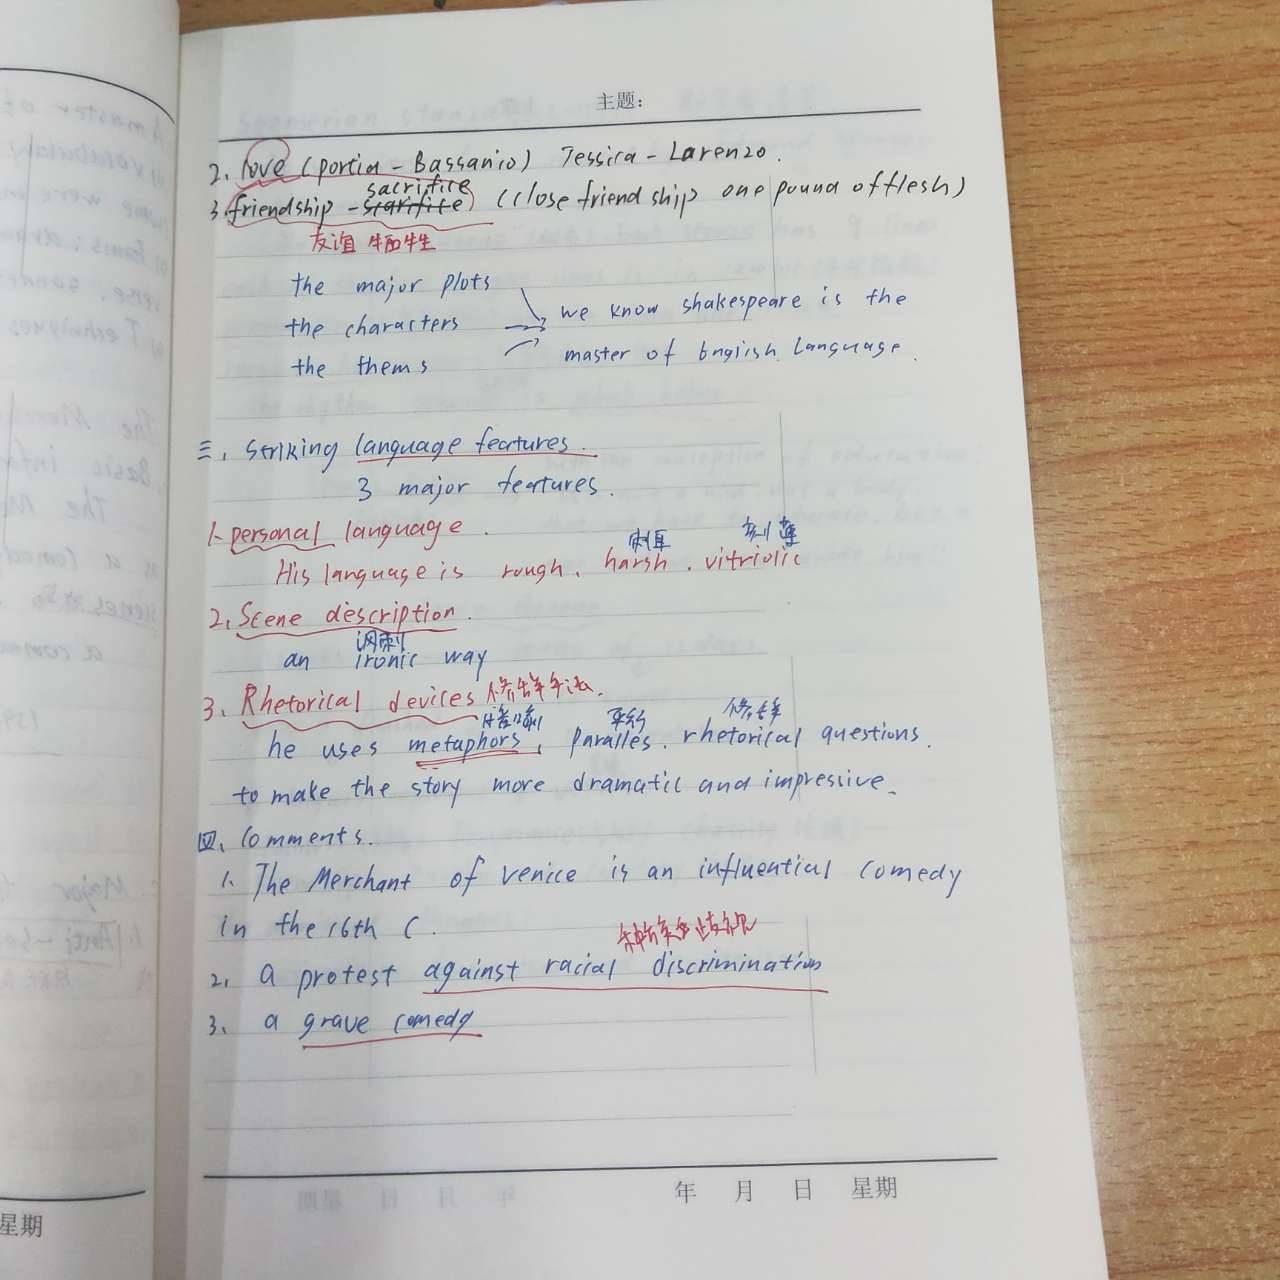 主题:
2. love (portia - Bassanio) Jessica - Larenzo.
sacrifice
3. friendship - starifice (close friendship one pound of flesh)
友谊 牺牲
the major plots
we know shakespeare is the
the characters
the thems
master of English Language.
三、Striking language features.
3 major features.
1. personal language.
刺耳 刻薄
His language is rough、harsh、vitriolic
2. Scene description.
讽刺
an ironic way
3. Rhetorical devices 修辞手法.
暗喻 平行 修辞
he uses metaphors, paralles、rhetorical questions.
to make the story more dramatic and impressive.
四、Comments.
1. The Merchant of Venice is an influential comedy
in the 16th C.
种族歧视
2. a protest against racial discrimination
3. a grave comedy
年 月 日 星期
星期